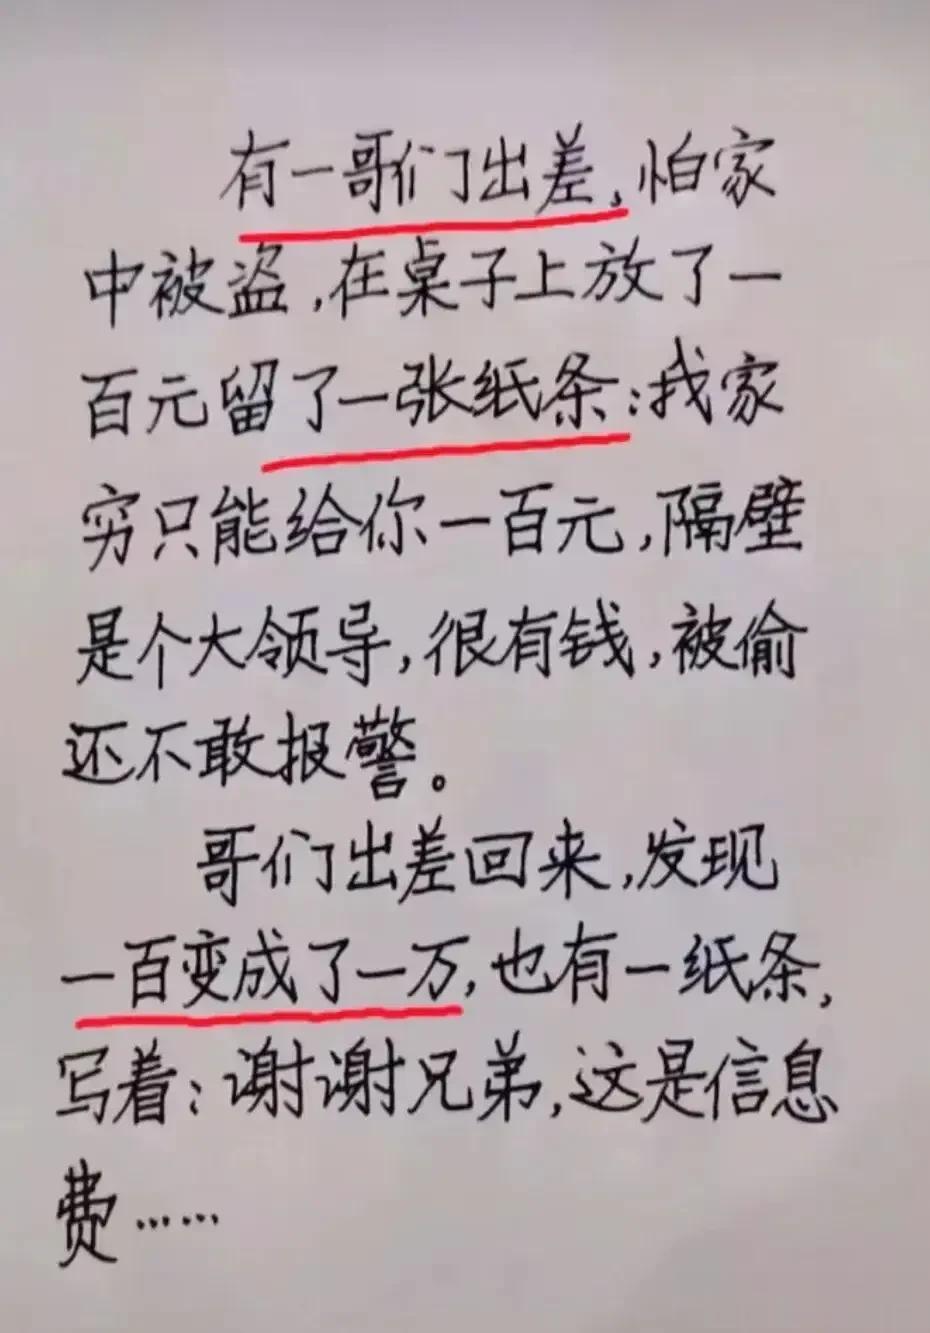 有一哥们出差,怕家
中被盗,在桌子上放了一
百元留了一张纸条:我家
穷只能给你一百元,隔壁
是个大领导,很有钱,被偷
还不敢报警。
哥们出差回来,发现
一百变成了一万,也有一纸条,
写着:谢谢兄弟,这是信息
费……